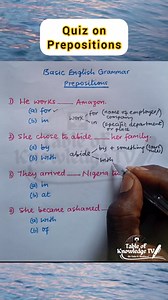 Quiz on
Prepositions
Basic English Grammar
Prepositions
1) He works ____ Amazon.
(a) for
(b) in
work
for (name of employer/company)
in (specific department or place)
2) She chose to abide ____ her family.
(a) by
(b) with
abide
by → something
with
3) They arrived ____ Nigeria
(a) in
(b) at
4) She became ashamed
(a) with
(b) of
Table of
Knowledge TV